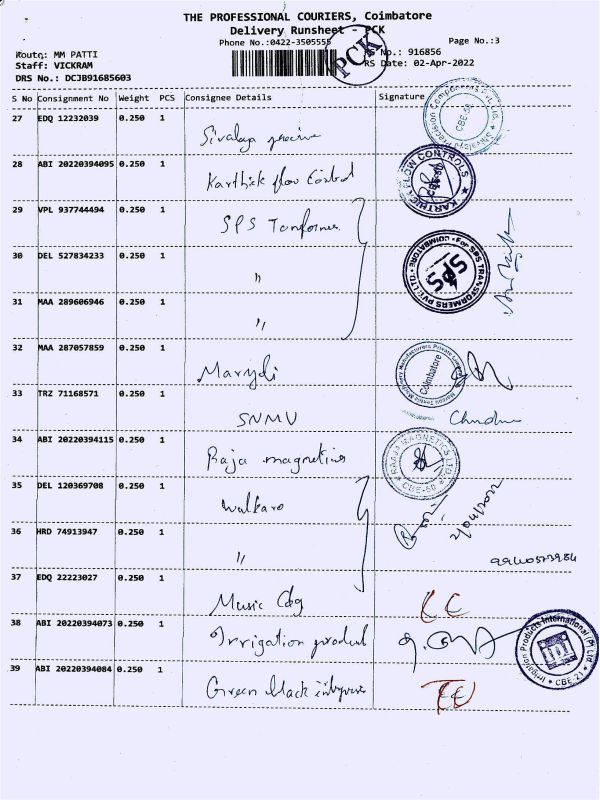 THE PROFESSIONAL COURIERS, Coimbatore
Delivery Runsheet - PCK
Phone No.:0422-3505555
Page No.:3
PCK
Route: MM PATTI
No.: 916856
Staff: VICKRAM
RS Date: 02-Apr-2022
DRS No.: DCJB91685603
S No Consignment No Weight PCS Consignee Details Signature
27 EDQ 12232039 0.250 1
28 ABI 20220394095 0.250 1 Karthick flow Control
KARTHICK FLOW CONTROLS
29 VPL 937744494 0.250 1 SPS
30 DEL 527834233 0.250 1 "
For SPS TRANSFORMERS PVT. LTD. COIMBATORE
SPS
31 MAA 289606946 0.250 1 "
32 MAA 287057859 0.250 1
Coimbatore
33 TRZ 71168571 0.250 1 SNMV
34 ABI 20220394115 0.250 1 Raja
35 DEL 120369708 0.250 1 Walkaro
2/04/2022
36 HRD 74913947 0.250 1 "
37 EDQ 22223027 0.250 1 Music
38 ABI 20220394073 0.250 1 Irrigation product
Irrigation Products International (P) Ltd.
CBE-21
39 ABI 20220394084 0.250 1 Green